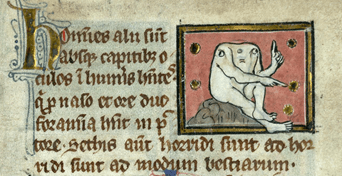 Homīes alii sūt
absq̄ꝫ capitibꝫ o
culos ī humīs hn̄tes
q̄ ꝓ naso et ore duo
foramīa hn̄t in p̄
tore. Sethis aūt horridi sunt ad hor
ridi sunt ad modum bestiarum.